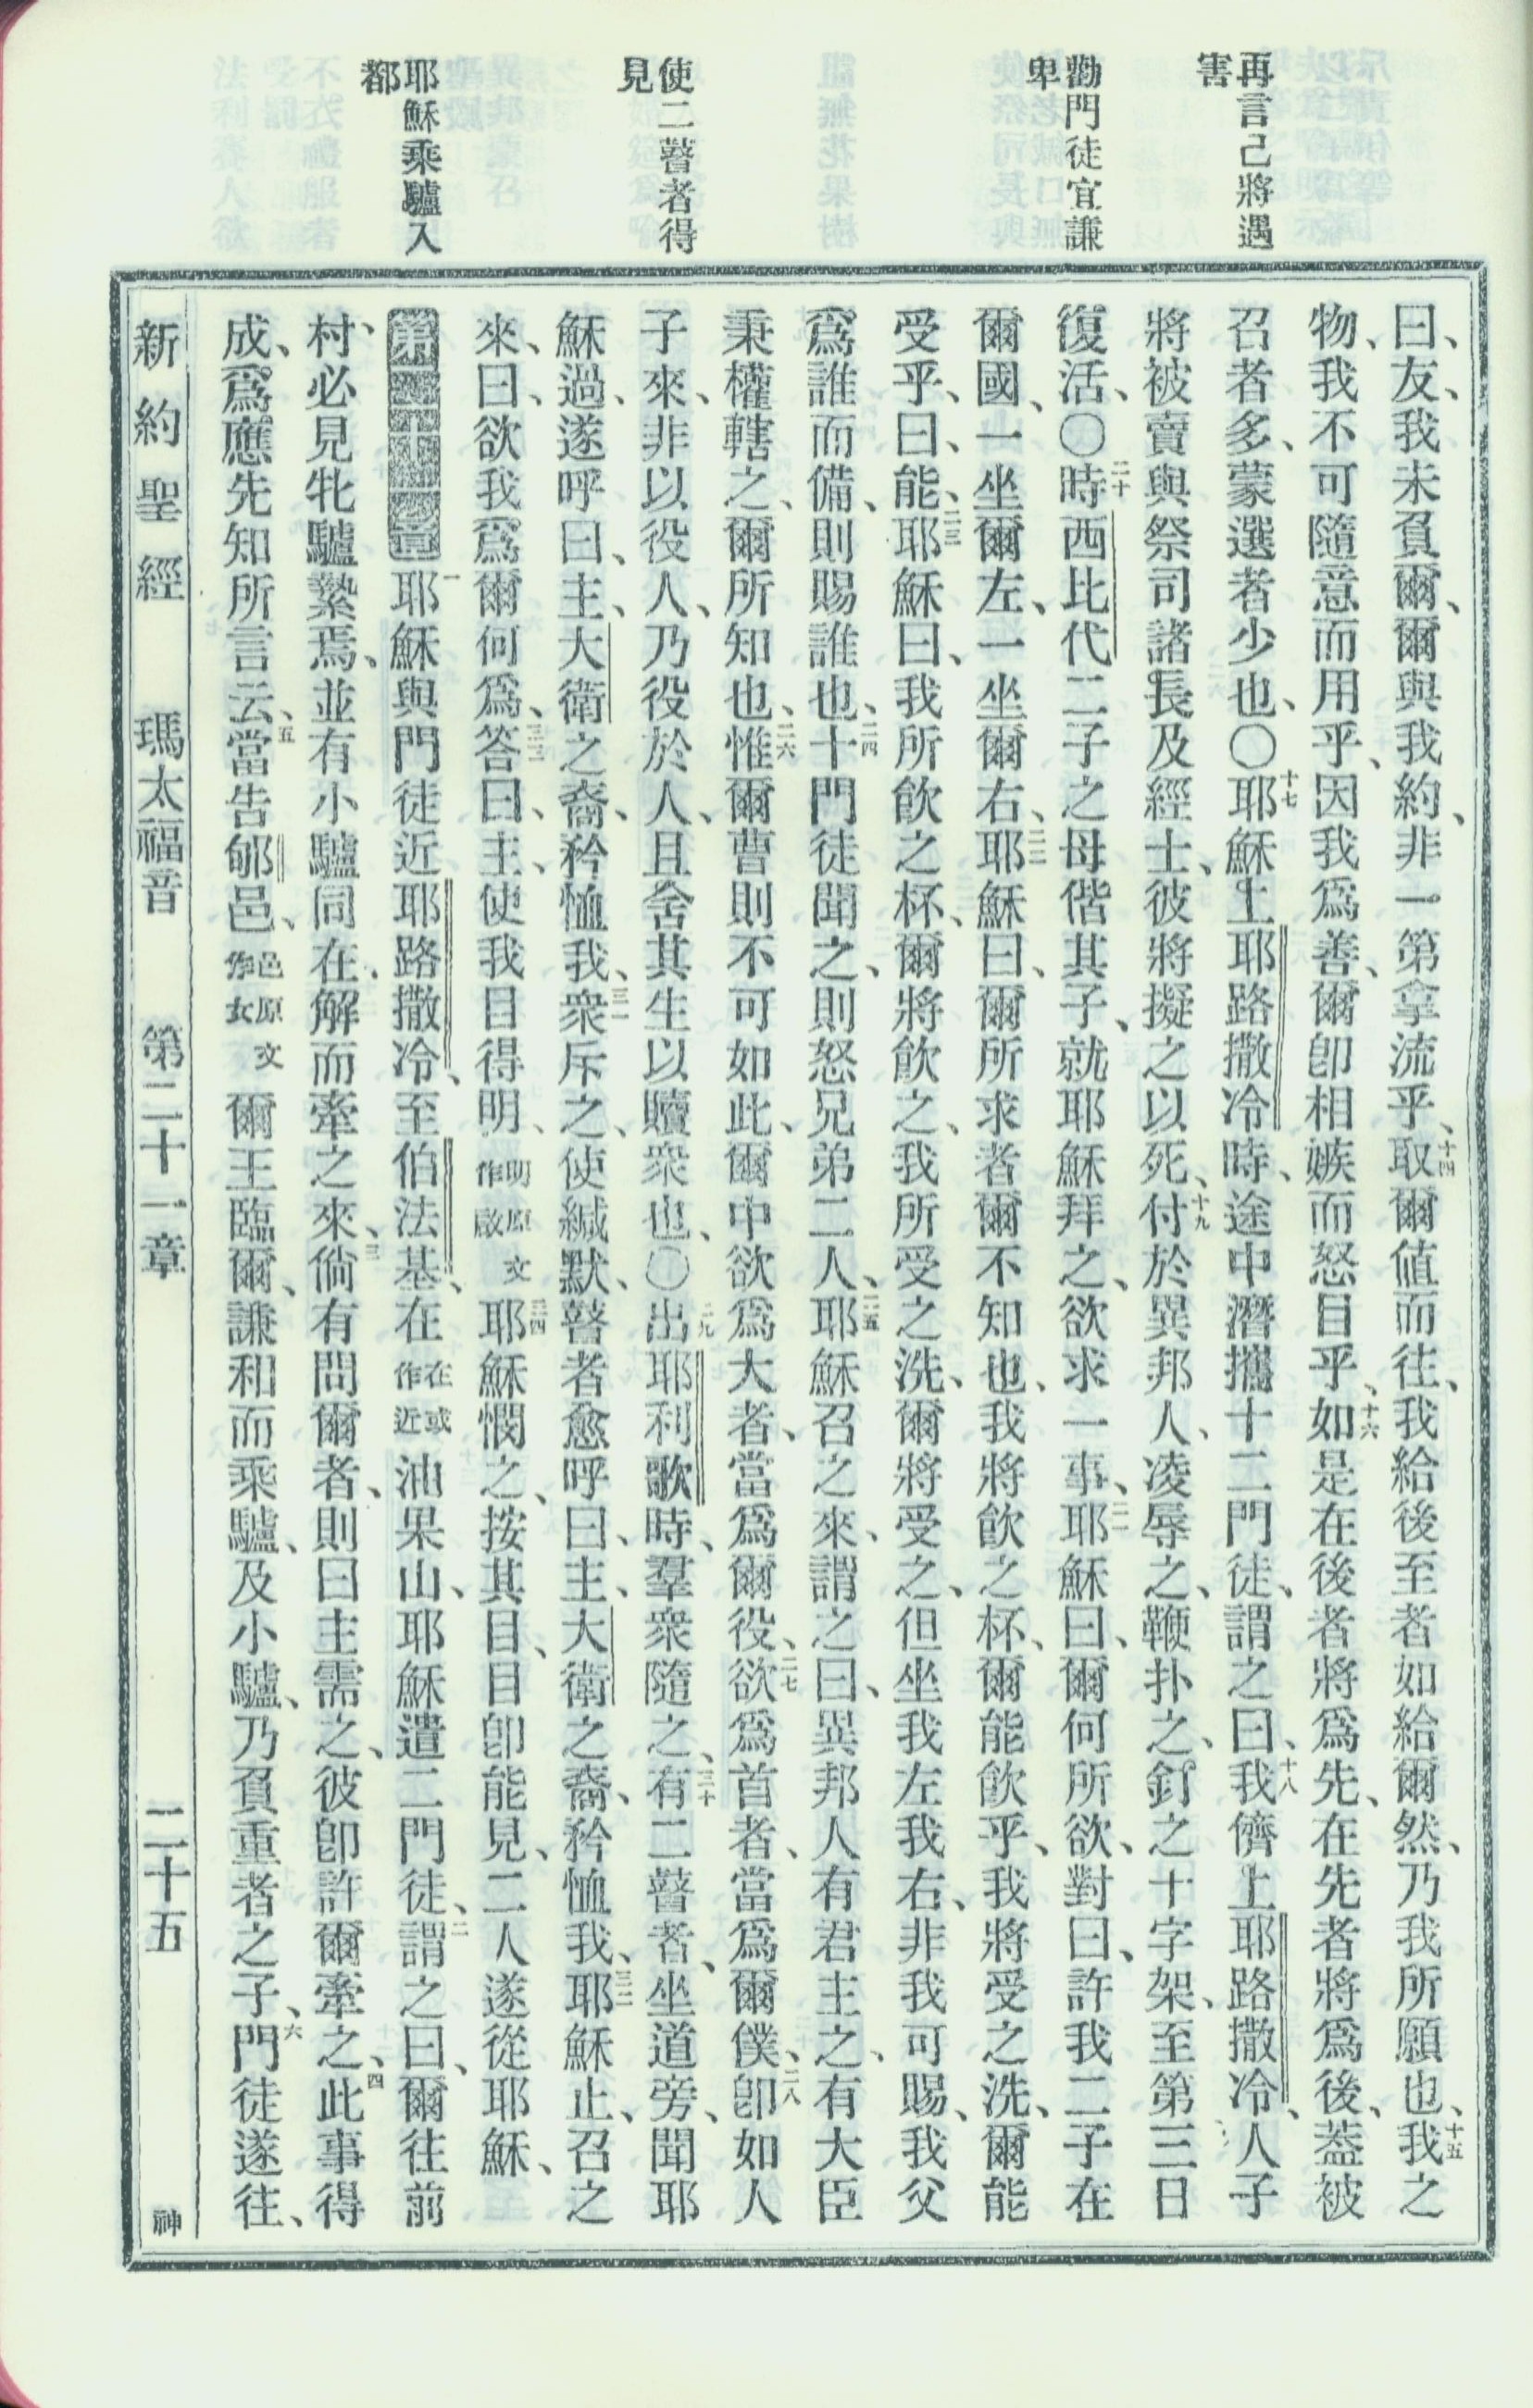 再言己將遇
害
勸門徒宜謙
卑
使二瞽者得
見
耶穌乘驢入
都
曰、友、我未負爾、爾與我約、非一第拿流乎、十四取爾値而往、我給後至者如給爾然、乃我所願也、十五我之
物、我不可隨意而用乎、因我爲善、爾卽相嫉而怒目乎、十六如是在後者將爲先、在先者將爲後、蓋被
召者多、蒙選者少也、〇十七耶穌上耶路撒冷時、途中潛攜十二門徒、謂之曰、十八我儕上耶路撒冷、人子
將被賣與祭司諸長及經士、彼將擬之以死、十九付於異邦人、凌辱之、鞭扑之、釘之十字架、至第三日
復活、〇二十時西比代二子之母偕其子、就耶穌拜之、欲求一事、二一耶穌曰、爾何所欲、對曰、許我二子在
爾國、一坐爾左、一坐爾右、二二耶穌曰、爾所求者爾不知也、我將飮之杯、爾能飮乎、我將受之洗、爾能
受乎、曰、能、二三耶穌曰、我所飮之杯、爾將飮之、我所受之洗、爾將受之、但坐我左我右、非我可賜、我父
爲誰而備、則賜誰也、二四十門徒聞之、則怒兄弟二人、二五耶穌召之來、謂之曰、異邦人有君主之、有大臣
秉權轄之、爾所知也、二六惟爾曹則不可如此、爾中欲爲大者、當爲爾役、二七欲爲首者、當爲爾僕、二八卽如人
子來、非以役人、乃役於人、且舍其生以贖衆也、〇二九出耶利歌時、羣衆隨之、三十有二瞽者、坐道旁、聞耶
穌過、遂呼曰、主、大衛之裔、矜恤我、三一衆斥之、使緘默、瞽者愈呼曰、主、大衛之裔、矜恤我、三二耶穌止、召之
來、曰、欲我爲爾何爲、三三答曰、主、使我目得明、明原文作啟三四耶穌憫之、按其目、目卽能見、二人遂從耶穌、
第二十一章一耶穌與門徒近耶路撒冷、至伯法基、在在或作近油果山、耶穌遣二門徒、二謂之曰、爾往前
村、必見牝驢縶焉、並有小驢同在、解而牽之來、三倘有問爾者、則曰主需之、彼卽許爾牽之、四此事得
成、爲應先知所言云、五當告郇邑、邑原文作女爾王臨爾、謙和而乘驢、及小驢、乃負重者之子、六門徒遂往、
新約聖經 瑪太福音 第二十一章 二十五 神